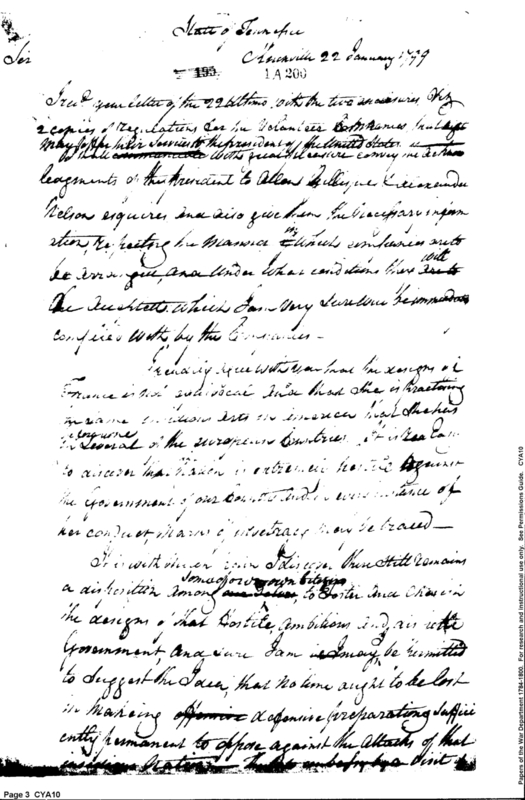 State of Tennessee
Sir Knoxville 22 January 1799
195 1A200
I recd your letter of the 22 ultimo, with the two enclosures Viz
2 copies of Regulations for the Volunteer Companies, that
may offer their Services to the president of the United States
I shall communicate With great pleasure convey the acknow
ledgments of the President to Allen Gillespie & Alexander
Nelson esquires and also give them the Necessary inform
ation, respecting the manner in which companies are to
be arranged, and under what conditions there will
be accepted, which I am very Sure will be immediately
complied with by the Companies —
I readily agree with you that the designs of
France is not and that She is Practising
the same insidious arts in america that She has
in Several of the european Countries. it is Easy
to discover that Nation is extremely hostile against
the Government of our Country and in every instance of
her conduct marks of may be traced —
It is with much pain I discover there Still remains
a disposition among some of our own citizens to foster and cherish
the designs of that Hostile, Ambitious and
Government, and sure I am I may be permitted
to Suggest the Idea, that no time ought to be lost
in making offensive defensive preparations Suffici
ently permanent to oppose against the Attacks of that
insidious Nation
Page 3 CYA10
Papers of the War Department 1784-1800. For research and instructional use only. See Permissions Guide. CYA10